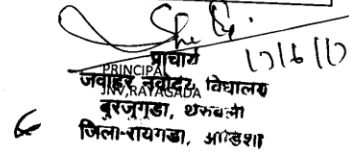 17/6/17
प्राचार्य
PRINCIPAL
जवाहर नवोदय विद्यालय
JNV, RAYAGADA
बुरजुगुडा, थेरुबली
जिला-रायगडा, ओडिशा